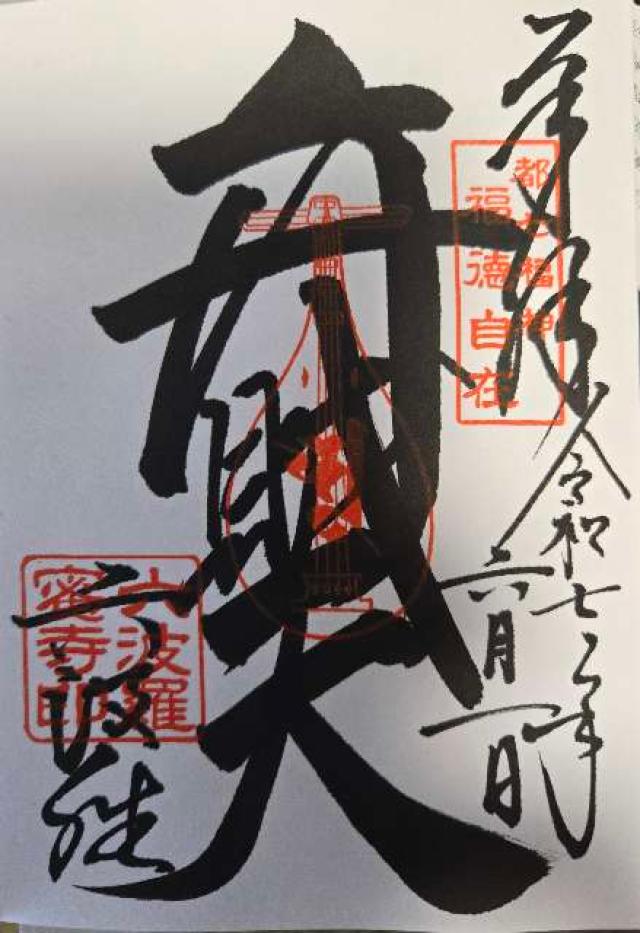 奉拝
令和七年
六月一日
都七福神
福徳自在
弁財天
六波羅
蜜寺印
六波羅